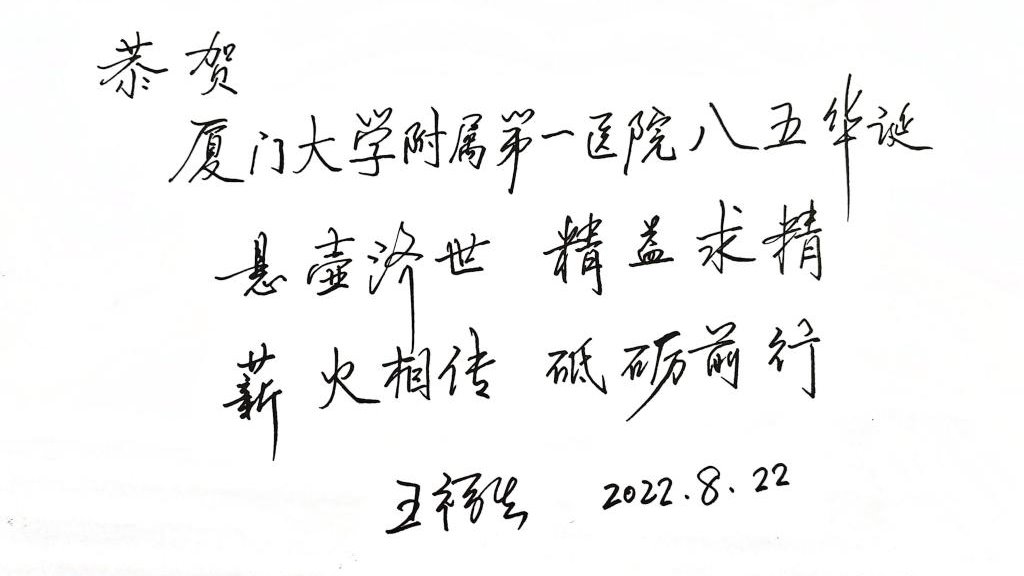 恭贺
厦门大学附属第一医院八五华诞
悬壶济世 精益求精
薪火相传 砥砺前行
王福生 2022.8.22